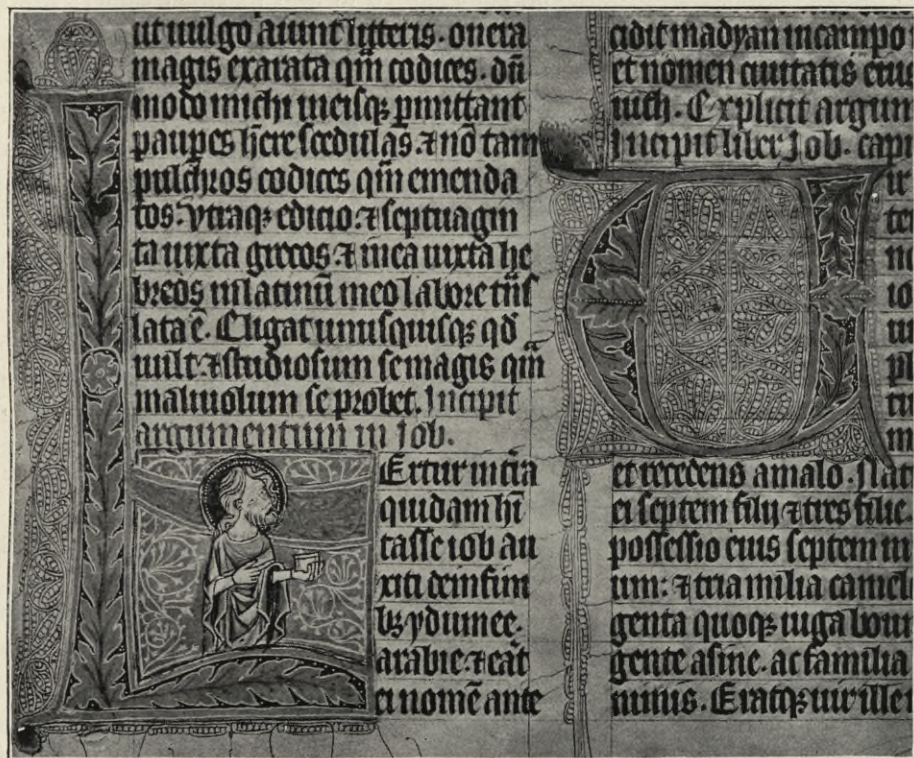 ut uulgo aiunt litteris. onera
magis exarata qm̄ codices. dū
modo michi meisq; ꝑmittant
paupes hr̄e scedulas. ⁊ nō tam
pulchros codices qm̄ emenda
tos. vtraq; edicio. ⁊ septuagin
ta iuxta grecos. ⁊ mea iuxta he
breos in latinū meo labore trās
lata ē. Eligat unusquisq; qd̄
uult. ⁊ studiosum se magis qm̄
maliuolum se probet. Incipit
argumentum in Iob.
Ertur in t̄ra
quidam hī
tasse iob au
xiti de in fini
bȝ ydumee.
arabie. ⁊ erāt
ei nomē ante
cidit madyan in campo
et nomen ciuitatis eius
uith. Explicit argum
Incipit liber Iob. capi
ir
te
m
io
u
pl
tu
m
et recedens a malo. Nati
ei septem filij ⁊ tres filie.
possessio eius septem m
um: ⁊ tria milia camel
genta quoq; iuga boum
gente asine. ac familia
nimis. Eratq; uir ille